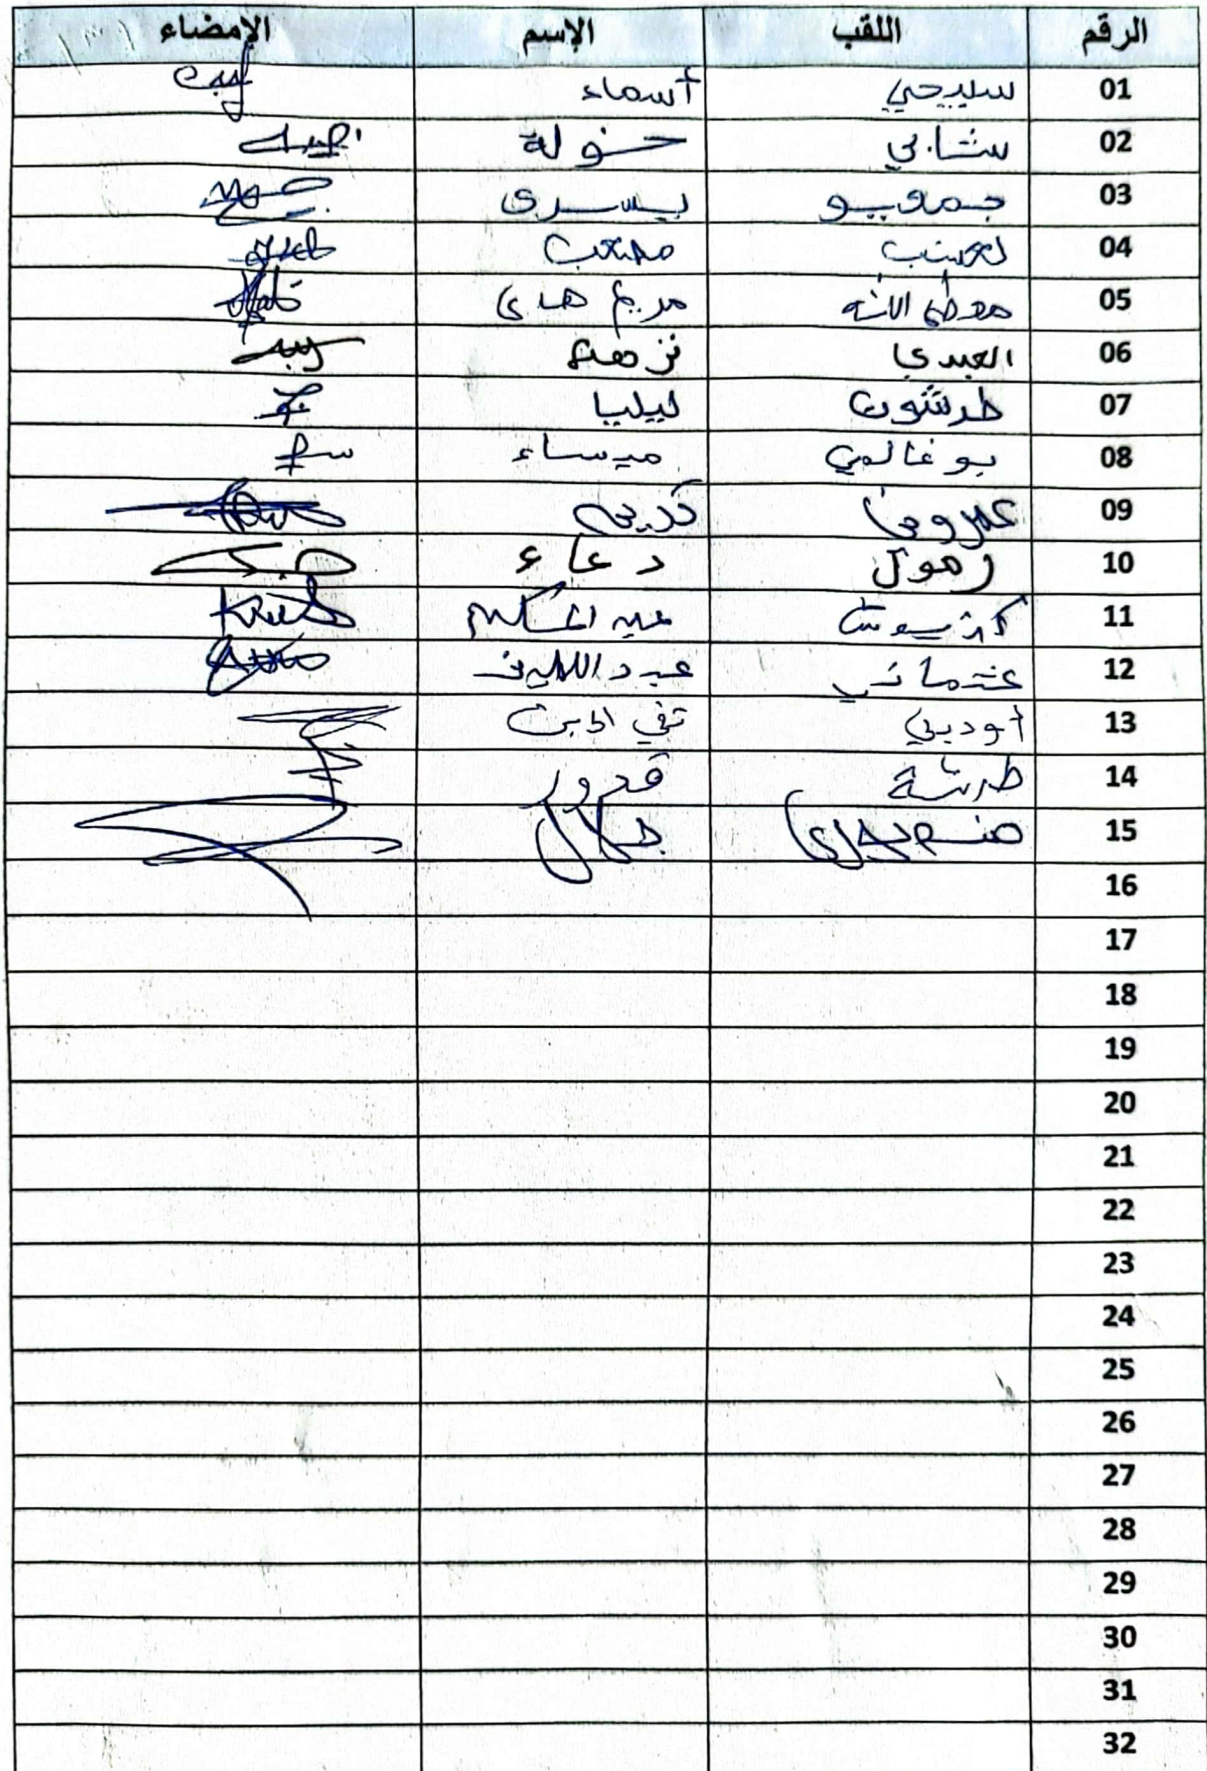 الرقم اللقب الإسم الإمضاء
01 سليبحي أسماء
02 شابي خولة
03 يسرى
04 لعيب مصعب
05 معطى الله مريم هدى
06 العبدي نزهة
07 طرشون ليليا
08 بوغالمي ميساء
09 كريم
10 زهول دعاء
11
12 عثماني عبد اللطيف
13 أوديني تقي الدين
14 طرشة قدور
15 جلال
16
17
18
19
20
21
22
23
24
25
26
27
28
29
30
31
32